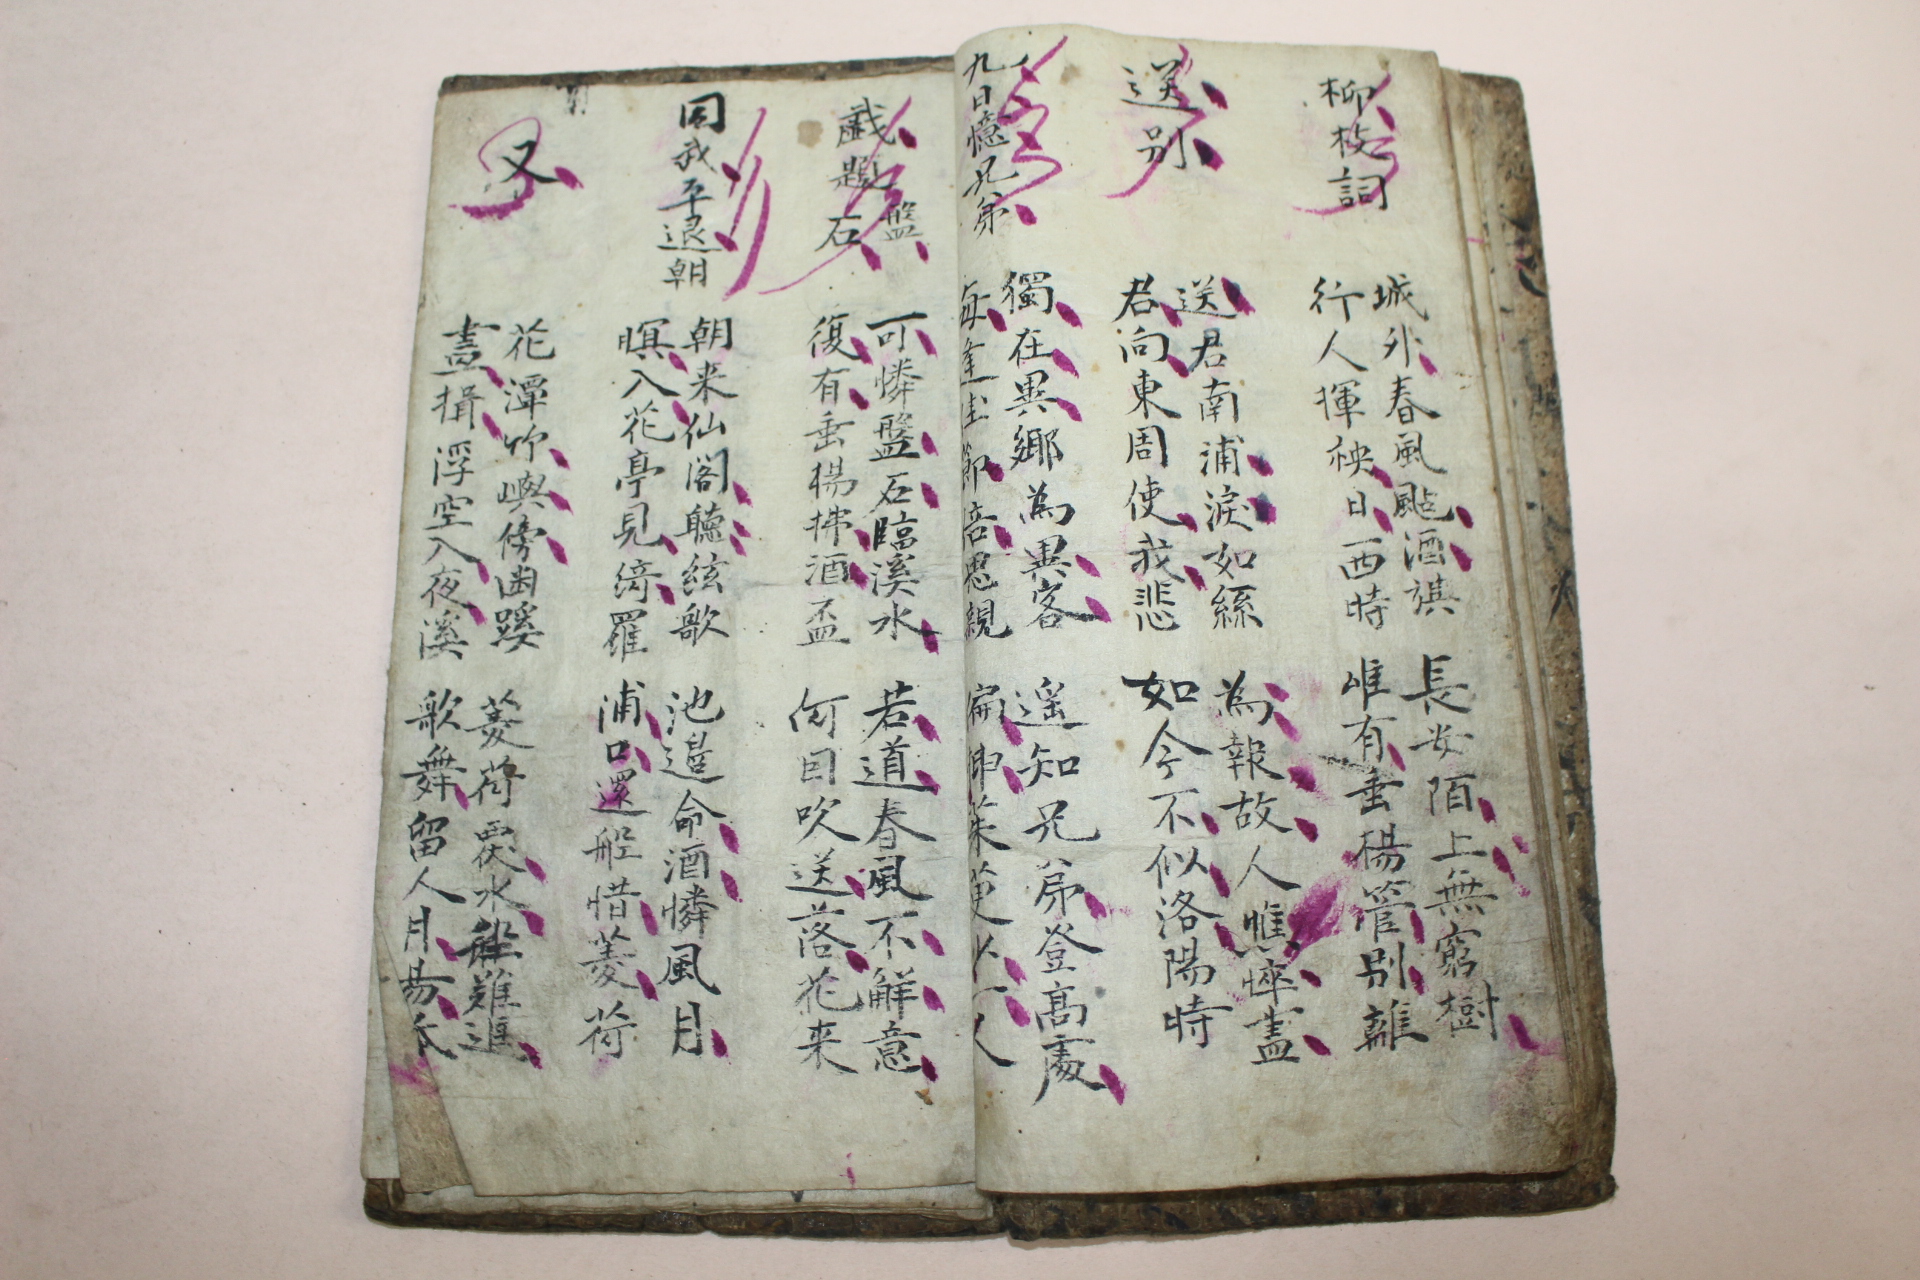 柳枝詞
城外春風颭酒旗
行人揮袂日西時
長安陌上無窮樹
唯有垂楊管別離
送別
送君南浦淚如絲
君向東周使我悲
為報故人憔悴盡
如今不似洛陽時
九日憶兄弟
獨在異鄉為異客
每逢佳節倍思親
遥知兄弟登高處
扁揷茱萸少一人
戱題盤石
可憐盤石臨溪水
復有垂楊拂酒盃
若道春風不解意
何因吹送落花来
同 平退朝
朝来仙閣聽絃歌
暝入花亭見綺羅
池邉命酒憐風月
浦口還船惜菱荷
又
花潭竹嶼傍幽蹊
畫揖浮空入夜溪
菱荷覆水船難進
歌舞留人月易低